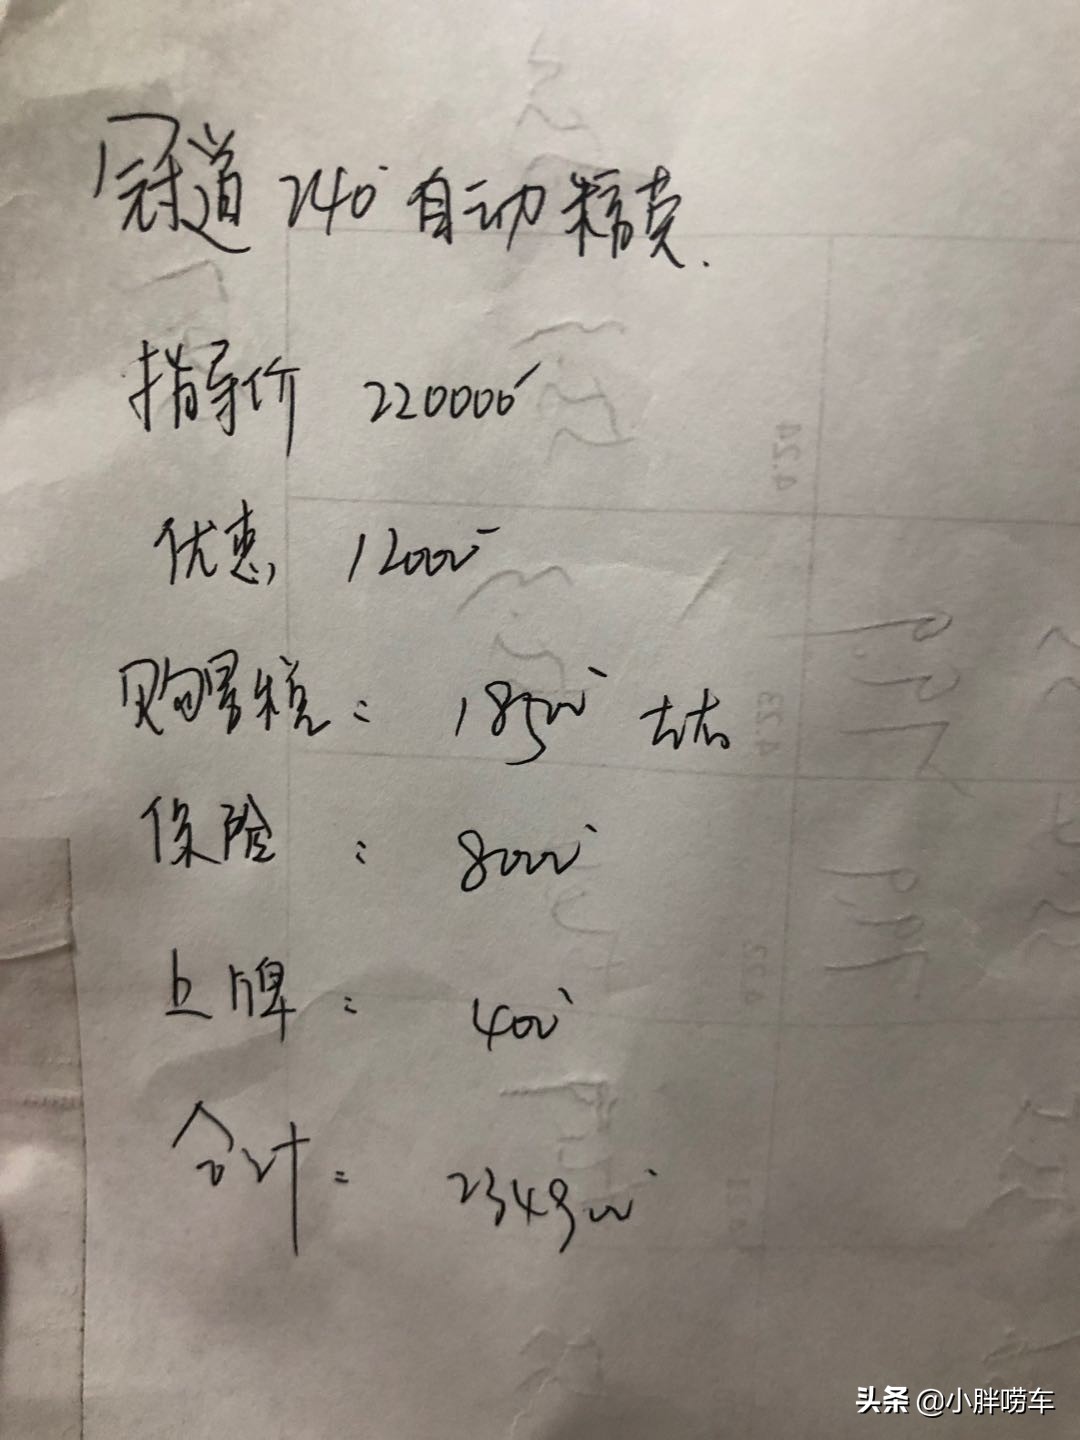 冠道 240 自动精英.
指导价 220000
优惠 12000
购置税: 18500 左右
保险: 8000
上牌: 400
合计: 234900
头条 @小胖唠车